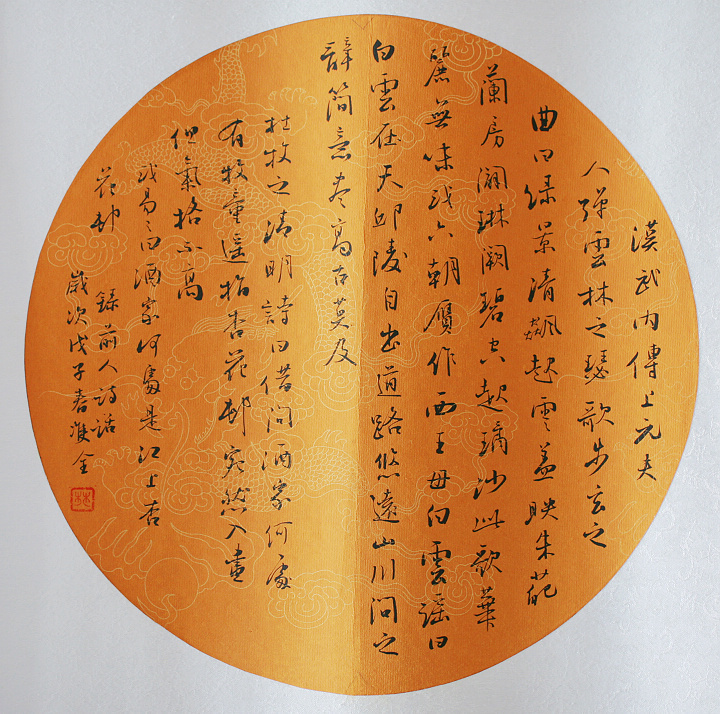 漢武内傳上元夫
人彈雲林之瑟歌步玄之
曲曰緑景清飆起雲蓋映朱葩
蘭房琳闕碧空起璚沙此歌華
麗無味或六朝贋作西王母白雲謡曰
白雲在天邱陵自出道路悠遠山川間之
辭簡意盡高古莫及
杜牧之清明詩曰借問酒家何處
有牧童遥指杏花邨宛然入畫
但氣格不高
或易之曰酒家何處是江上杏
花邨
録前人詩話
歲次戊子春雙全